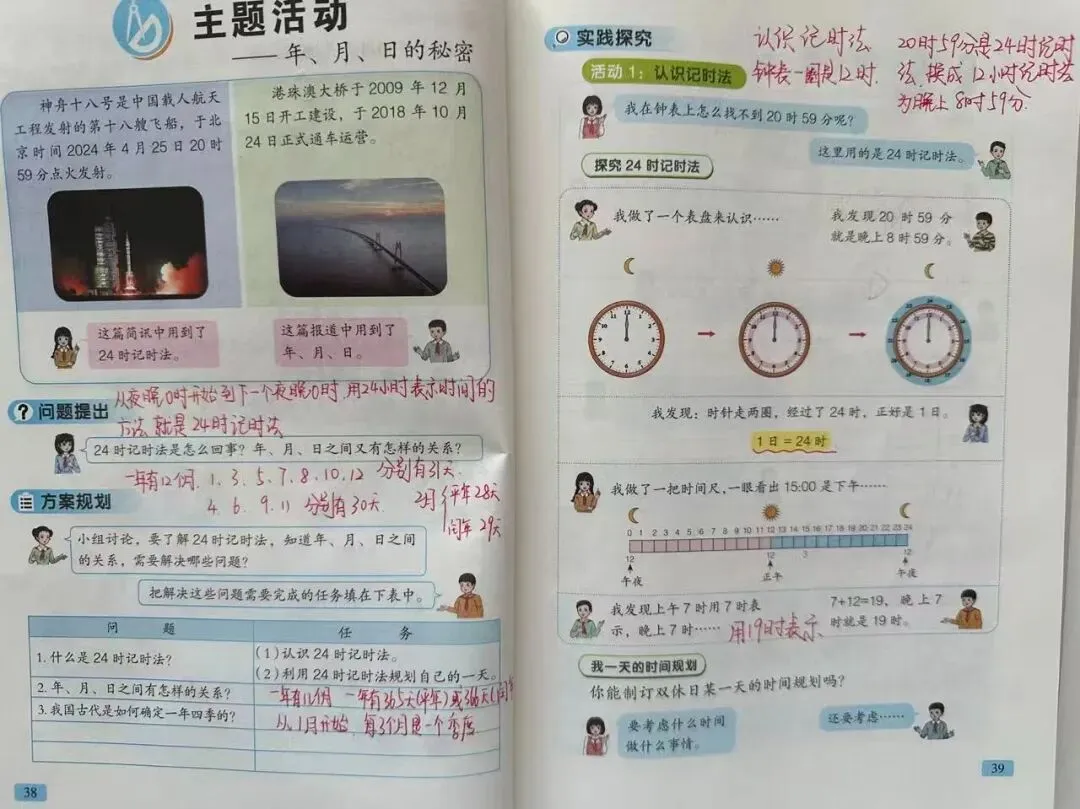 主题活动
——年、月、日的秘密
神舟十八号是中国载人航天
工程发射的第十八艘飞船,于北
京时间 2024 年 4 月 25 日 20 时
59 分点火发射。
港珠澳大桥于 2009 年 12 月
15 日开工建设,于 2018 年 10 月
24 日正式通车运营。
这篇简讯中用到了
24 时记时法。
这篇报道中用到了
年、月、日。
从夜晚0时开始到下一个夜晚0时,用24小时表示时间的
? 问题提出
方法就是24时记时法
24 时记时法是怎么回事?年、月、日之间又有怎样的关系?
一年有12个月 1、3、5、7、8、10、12 分别有31天
4、6、9、11 分别有30天 2月 平年28天
闰年 29天
方案规划
小组讨论,要了解 24 时记时法,知道年、月、日之间
的关系,需要解决哪些问题?
把解决这些问题需要完成的任务填在下表中。
问 题 任 务
1. 什么是 24 时记时法? (1)认识 24 时记时法。
(2)利用 24 时记时法规划自己的一天。
2. 年、月、日之间有怎样的关系? 一年有12个月 一年有365天(平年)或366天(闰年
3. 我国古代是如何确定一年四季的? 从1月开始,每3个月是一个季度
38
实践探究
认识记时法
钟表一圈是12时.
20时59分是24时记时
法,换成12小时记时法
为晚上8时59分.
活动 1:认识记时法
我在钟表上怎么找不到 20 时 59 分呢?
这里用的是 24 时记时法。
探究 24 时记时法
我做了一个表盘来认识……
我发现 20 时 59 分
就是晚上 8 时 59 分。
我发现:时针走两圈,经过了 24 时,正好是 1 日。
1 日 = 24 时
我做了一把时间尺,一眼看出 15:00 是下午……
0 1 2 3 4 5 6 7 8 9 10 11 12 13 14 15 16 17 18 19 20 21 22 23 24
12 12 3 12
午夜 正午 午夜
我发现上午 7 时用 7 时表
示,晚上 7 时…… 用19时表示
7+12=19,晚上 7
时就是 19 时。
我一天的时间规划
你能制订双休日某一天的时间规划吗?
要考虑什么时间
做什么事情。
还要考虑……
39